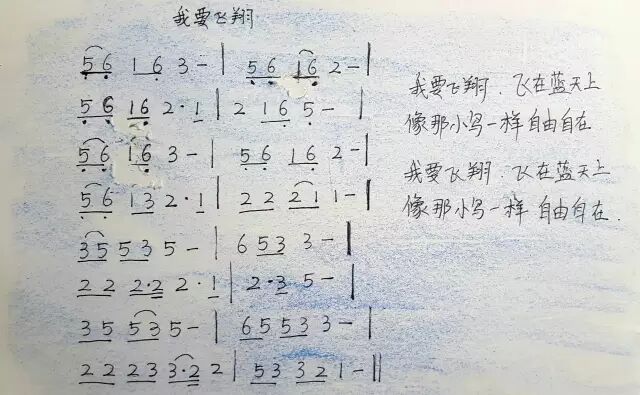 我要飞翔
56 16 3 - | 56 16 2 - |
56 16 2· 1 | 2 16 5 - |
56 16 3 - | 56 16 2 - |
56 13 2· 1 | 22 21 1 - |
35 53 5 - | 6 53 3 - |
22 2·2 2· 1 | 2·3 5 - |
35 53 5 - | 65 53 3 - |
22 23 3·2 2 | 53 32 1 - ||
我要飞翔．飞在蓝天上
像那小鸟一样 自由自在
我要飞翔．飞在蓝天上
像那小鸟一样 自由自在．